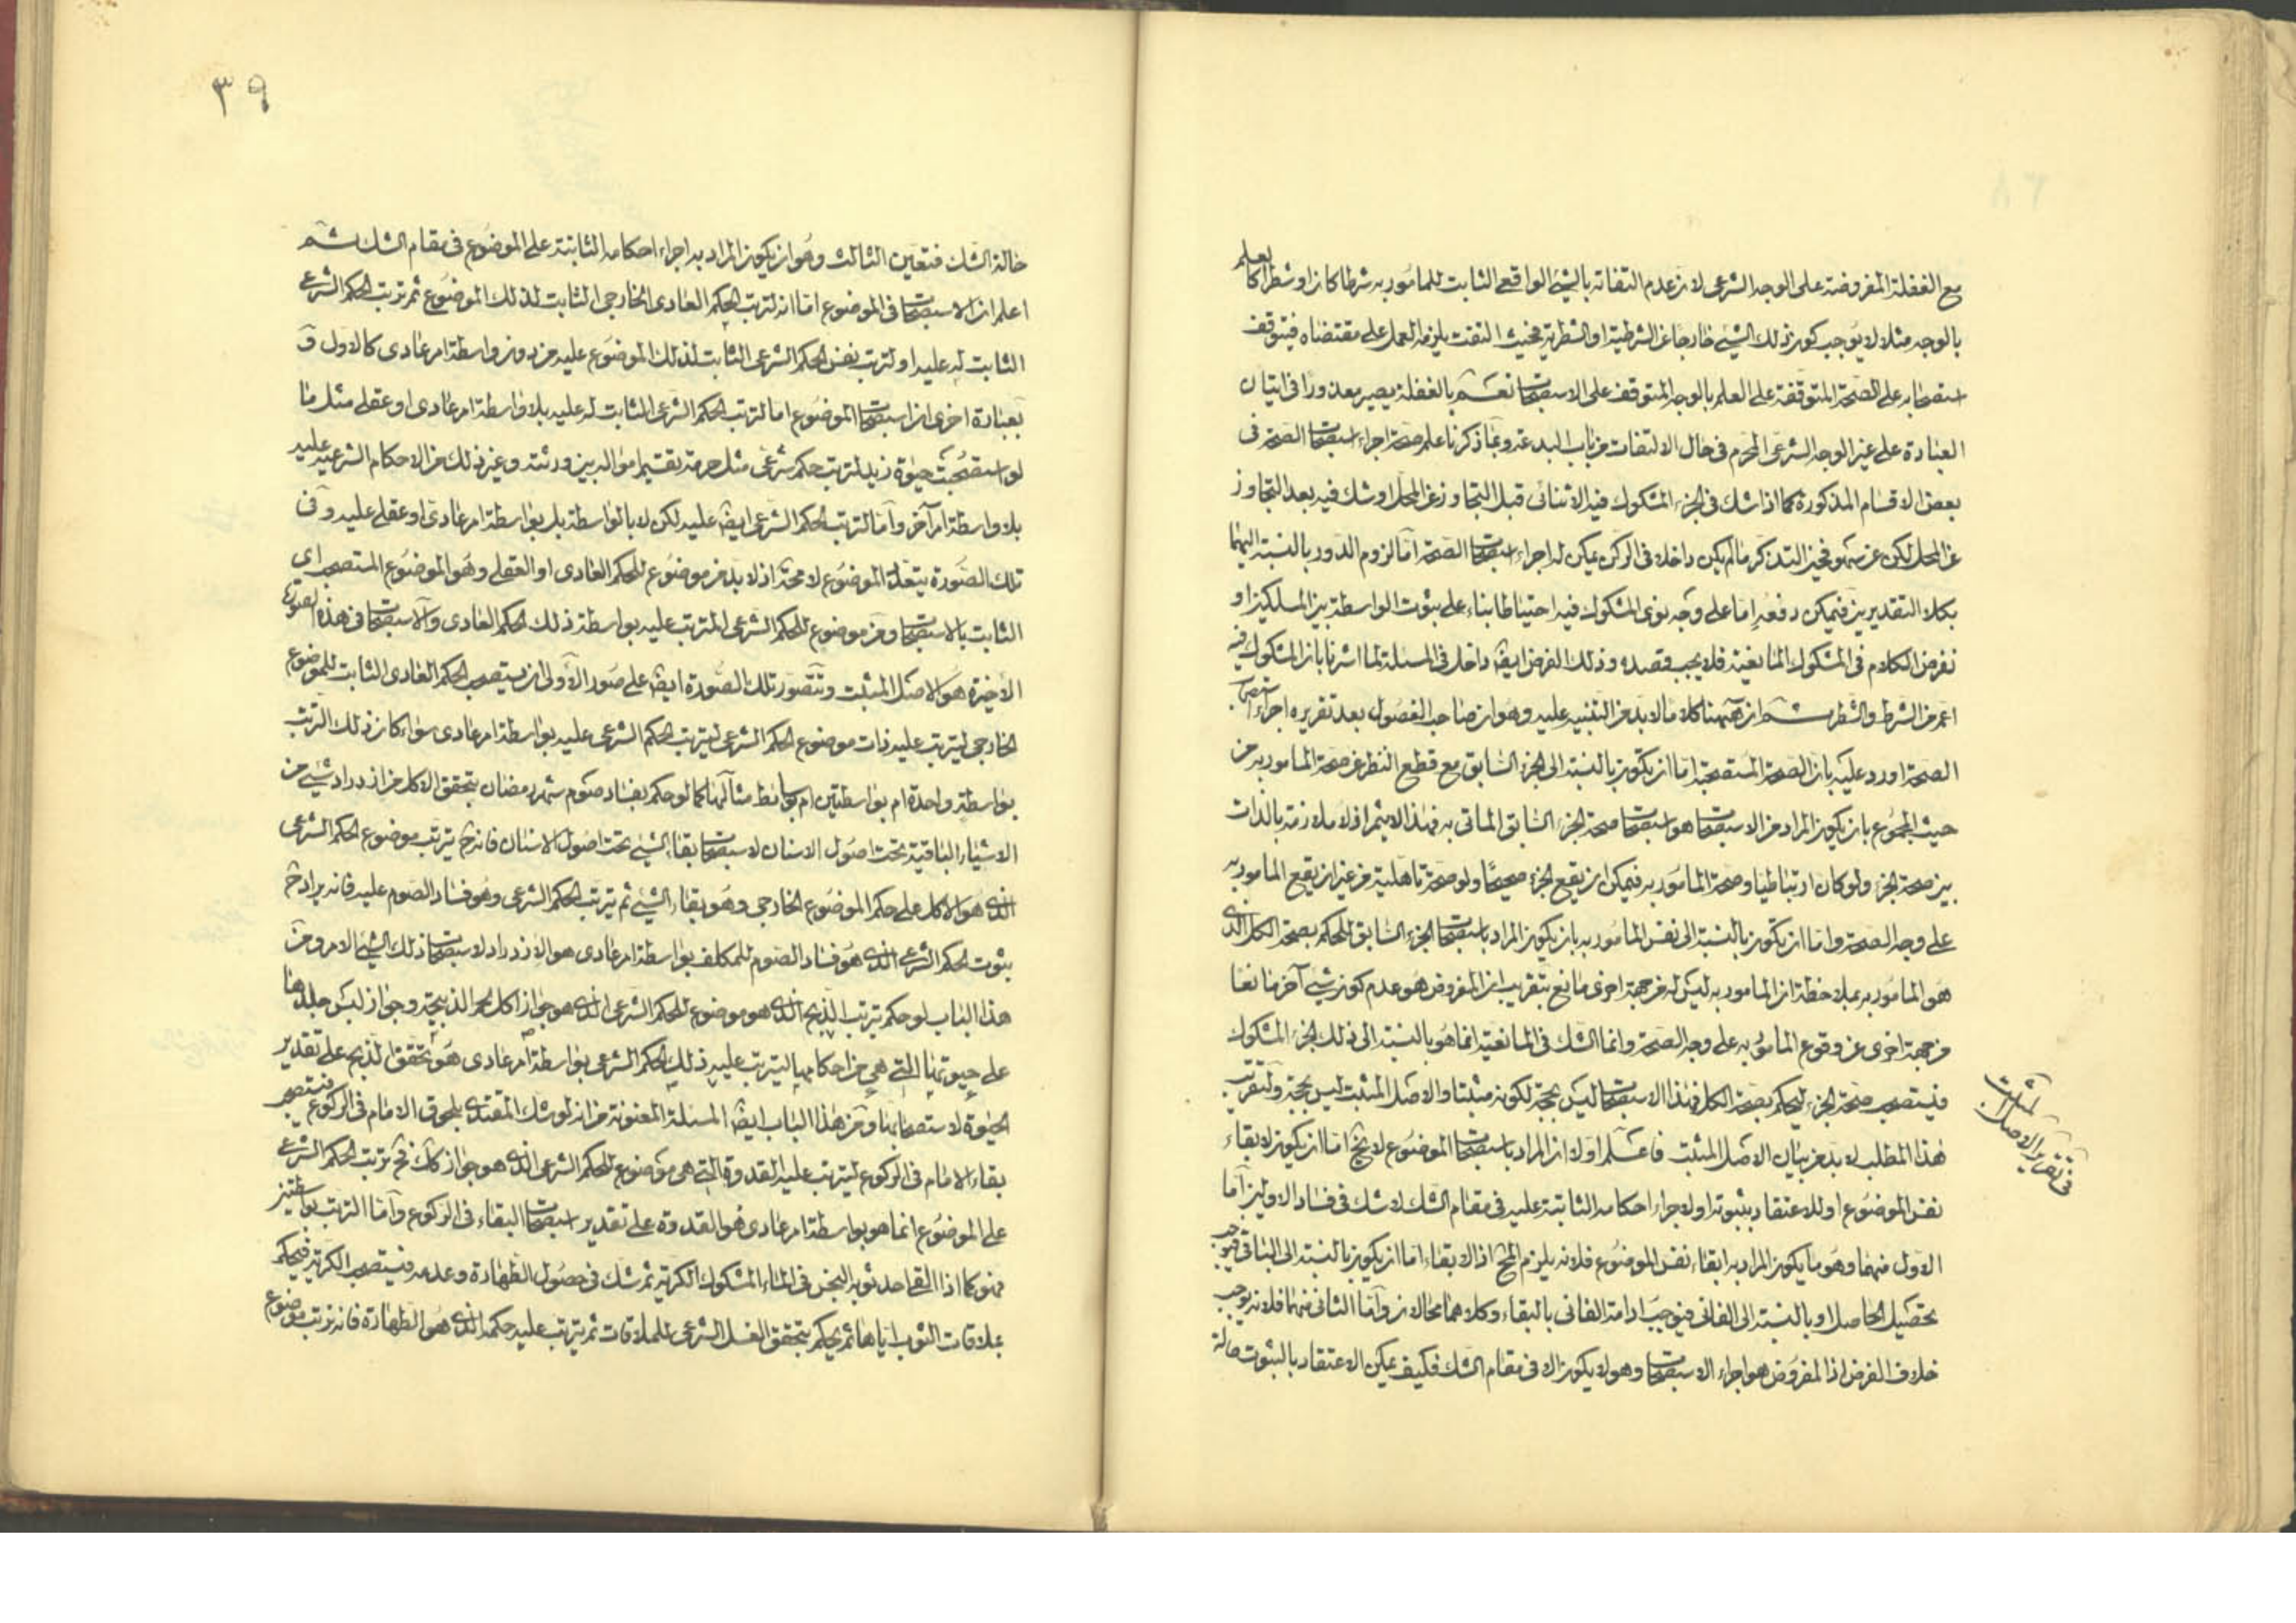 مع الغفلة المفروضة على الوجه الشرعى لان عدم التفاته بالشئ الواقعى الثابت للمامور به شرطا كان او شطرا كالعلم
بالوجه مثلا لا يوجب كون ذلك الشئ خارجا عن الشرطية او الشطرية فحيث التفت يلزمه العمل على مقتضاه فيتوقف
استصحابه على الصحة المتوقفة على العلم بالوجه المتوقف على الاستصحاب نعم بالغفلة يصير معذورا فى اتيان
العبادة على غير الوجه الشرعى المحرم فى حال الالتفات من باب البدعة ومما ذكرنا علم صحة اجراء استصحاب الصحة فى
بعض الاقسام المذكورة كما اذا شك فى الجزء المشكوك فيه الاثنائى قبل التجاوز عن المحل او شك فيه بعد التجاوز
عن المحل لكن عن سهو فحين التذكر ما لم يكن داخلا فى الركن يمكن له اجراء استصحاب الصحة اما لزوم الدور بالنسبة اليهما
بكلا التقديرين فيمكن دفعه اما على وجه نوى المشكوك فيه احتياطا بناء على ثبوت الواسطة بين المسلكين او
نفرض الكلام فى المشكوك المانعية فلا يجب قصده وذلك الفرض ايضا داخل فى المسئلة لما اشرنا بان المشكوك فيه
اعم من الشرط والشطر ثم ان ههنا كلاما لا بد من التنبيه عليه وهو ان صاحب الفصول بعد تقريره اجراء استصحاب
الصحة اورد عليه بان الصحة المستصحبة اما ان يكون بالنسبة الى الجزء السابق مع قطع النظر عن صحة المامور به من
حيث المجموع بان يكون المراد من الاستصحاب هو استصحاب صحة الجزء السابق الماتى به فهذا لا يثمر اذ لا ملازمة بالذات
بين صحة الجزء ولو كان ارتباطيا وصحة المامور به فيمكن ان يقع الجزء صحيحا ولو صحة تاهلية من غير ان يقع المامور به
على وجه الصحة واما ان يكون بالنسبة الى نفس المامور به بان يكون المراد باستصحاب الجزء السابق للحكم بصحة الكل الذى
هو المامور به بملاحظة ان المامور به ليس له من جهة اخرى مانع بتقريب ان المفروض هو عدم كون شئ آخر مانعا
من جهة اخرى عن وقوع المامور به على وجه الصحة وانما الشك فى المانعية انما هو بالنسبة الى ذلك الجزء المشكوك
فيستصحب صحة الجزء ليحكم بصحة الكل فهذا الاستصحاب ليس بحجة لكونه مثبتا والاصل المثبت ليس بحجة ولتقريب
هذا المطلب لا بد من بيان الاصل المثبت فاعلم اولا ان المراد باستصحاب الموضوع لا يخ اما ان يكون لابقاء
نفس الموضوع او للاعتقاد بثبوته او لاجراء احكامه الثابتة عليه فى مقام الشك لا شك فى فساد الاولين اما
الاول منهما وهو ما يكون المراد به ابقاء نفس الموضوع فلانه يلزم المح اذ الابقاء اما ان يكون بالنسبة الى الباقى فيوجب
تحصيل الحاصل او بالنسبة الى الفانى فيوجب ادامة الفانى بالبقاء وكلاهما محالان واما الثانى منهما فلانه يوجب
خلاف الفرض اذ المفروض هو اجراء الاستصحاب وهو لا يكون الا فى مقام الشك فكيف يمكن الاعتقاد بالثبوت حالة
فى تقرير الاصل المثبت
٣٩
حالة الشك فتعين الثالث وهو ان يكون المراد به اجراء احكامه الثابتة على الموضوع فى مقام الشك ثم
اعلم ان الاستصحاب فى الموضوع اما انه لترتب الحكم العادى الخارجى الثابت لذلك الموضوع ثم ترتب الحكم الشرعى
الثابت له عليه او لترتب نفس الحكم الشرعى الثابت لذلك الموضوع عليه من دون واسطة امر عادى كالاول و
بعبارة اخرى ان استصحاب الموضوع اما لترتب الحكم الشرعى الثابت له عليه بلا واسطة امر عادى او عقلى مثل ما
لو استصحبت حيوة زيد لترتب حكم شرعى مثل حرمة تقسيم امواله بين ورثته وغير ذلك من الاحكام الشرعية عليه
بلا واسطة امر آخر واما لترتب الحكم الشرعى ايضا عليه لكن لا بالواسطة بل بواسطة امر عادى او عقلى عليه وفى
تلك الصورة يتعدد الموضوع لا محة اذ لا بد من موضوع للحكم العادى او العقلى وهو الموضوع المستصحب اى
الثابت بالاستصحاب ومن موضوع للحكم الشرعى المترتب عليه بواسطة ذلك الحكم العادى والاستصحاب فى هذه الصورة
الاخيرة هو الاصل المثبت وتتصور تلك الصورة ايضا على صور الاولى ان يستصحب الحكم العادى الثابت للموضوع
الخارجى ليترتب عليه ذات موضوع الحكم الشرعى ليترتب الحكم الشرعى عليه بواسطة امر عادى سواء كان ذلك الترتب
بواسطة واحدة ام بواسطتين ام بوسائط مثالها كما لو حكم بفساد صوم شهر رمضان بتحقق الاكل من ازدراد شئ من
الاشياء الباقية تحت اصول الاسنان لاستصحاب بقاء الشئ تحت اصول الاسنان فانه ح يترتب موضوع الحكم الشرعى
الذى هو الاكل على حكم الموضوع الخارجى وهو بقاء الشئ ثم يترتب الحكم الشرعى وهو فساد الصوم عليه فانه يراد ح
ثبوت الحكم الشرعى الذى هو فساد الصوم للمكلف بواسطة امر عادى هو الازدراد لاستصحاب ذلك الشئ الامر ومن
هذا الباب لو حكم بترتب الذبح الذى هو موضوع للحكم الشرعى الذى هو جواز اكل لحم الذبيحة وجواز لبس جلدها
على حيوتها التى هى من احكامها ليترتب عليه ذلك الحكم الشرعى بواسطة امر عادى هو تحقق الذبح على تقدير
الحيوة لاستصحابها ومن هذا الباب ايضا المسئلة المعنونة من انه لو شك المقتدى بلحوق الامام فى الركوع فيستصحب
بقاء الامام فى الركوع ليترتب عليه القدوة التى هى موضوع للحكم الشرعى الذى هو جواز كك فح ترتب الحكم الشرعى
على الموضوع انما هو بواسطة امر عادى هو القدوة على تقدير استصحاب البقاء فى الركوع واما الترتب بواسطتين
فهو كما اذا القا احد ثوبه النجس فى الماء المشكوك الكرية ثم شك فى حصول الطهارة وعدمه فيستصحب الكرية فيحكم
بملاقات الثوب اياها ثم يحكم بتحقق الغسل الشرعى للملاقات ثم يترتب عليه حكمه الذى هو الطهارة فانه ترتب موضوع